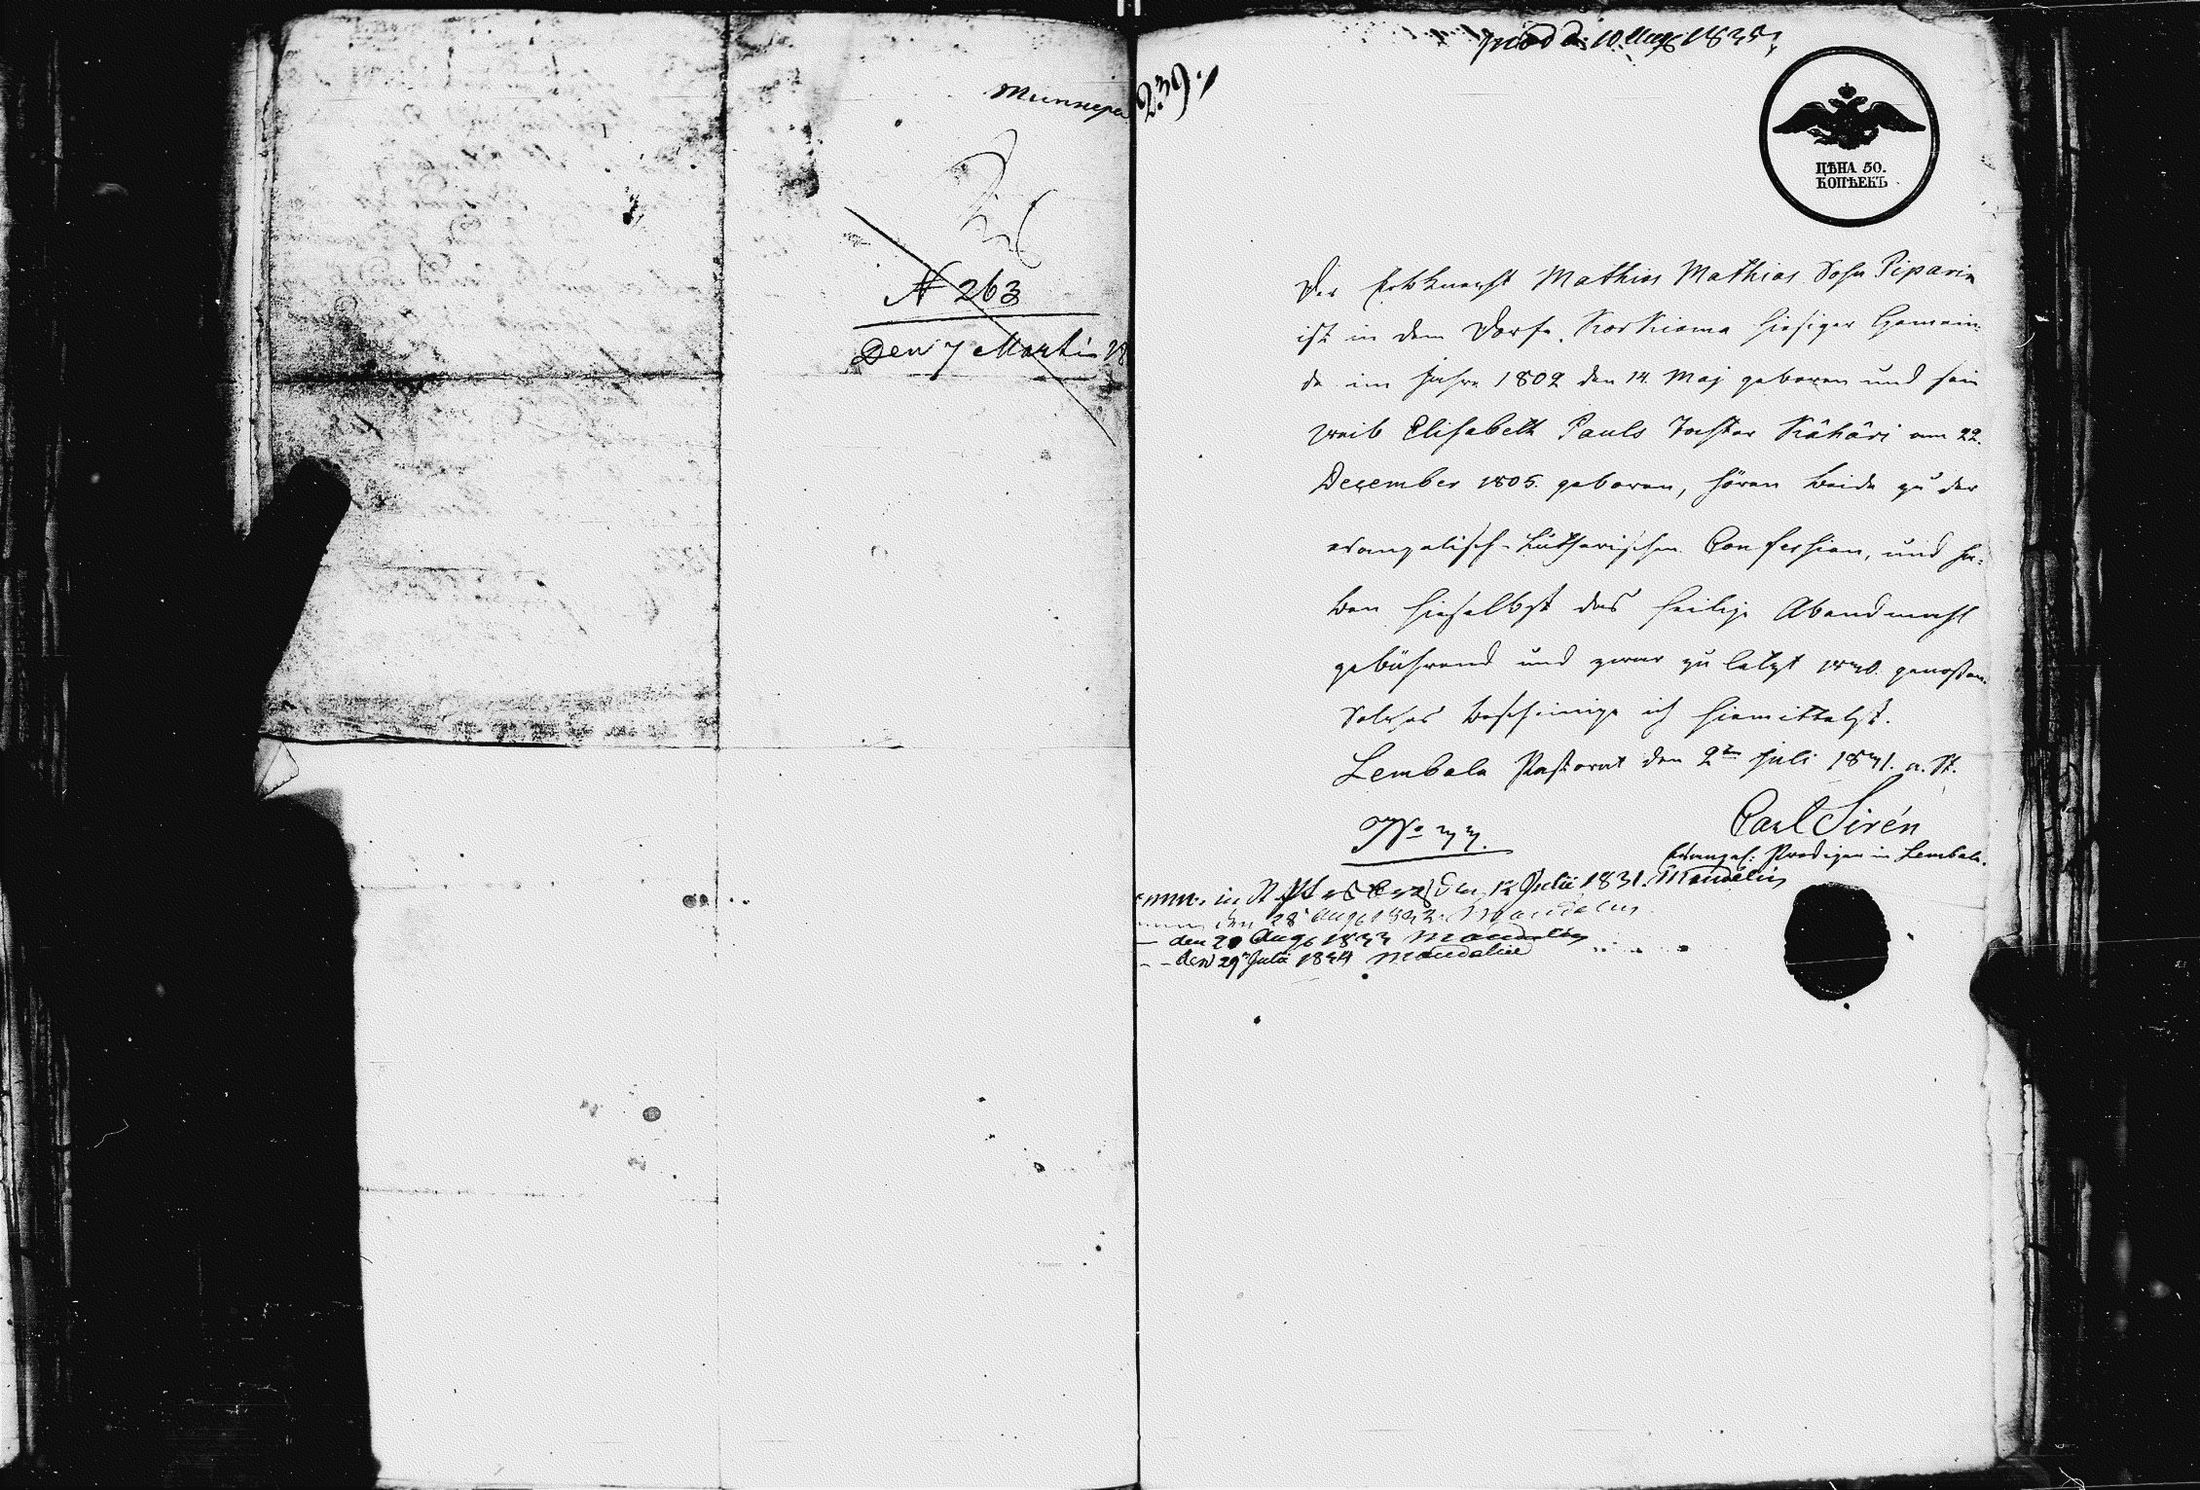 Миннера
N 263
Den 7 Martii 18
239.
d. 10 Aug 1835
ЦѢНА 50.
КОПѢЕКЪ
Der Erbknecht Mathias Mathias Sohn Piparin
ist in dem Dorfe Korkiama hiesiger Gemein-
de im Jahre 1802 den 14. Maj geboren und sein
Weib Elisabeth Pauls Tochter Kähäri am 22.
December 1805. geboren, hören beide zu der
evangelisch-lutherischen Confession, und ha-
ben hieselbst das heilige Abendmahl
gebührend und zwar zu letzt 1830. genossen.
Solches bescheinige ich hiemittelst.
Lembala Pastorat den 2ten Juli 1831. a. St.
Carl Sirén
No 33.
Evangel: Prediger in Lembala.
comm. in St den 12 Julii 1831. Mandelin
den 28 Aug 1832. Mandelin
den 20 Aug 1833 Mandelin
den 29 Julii 1834 Mandelin